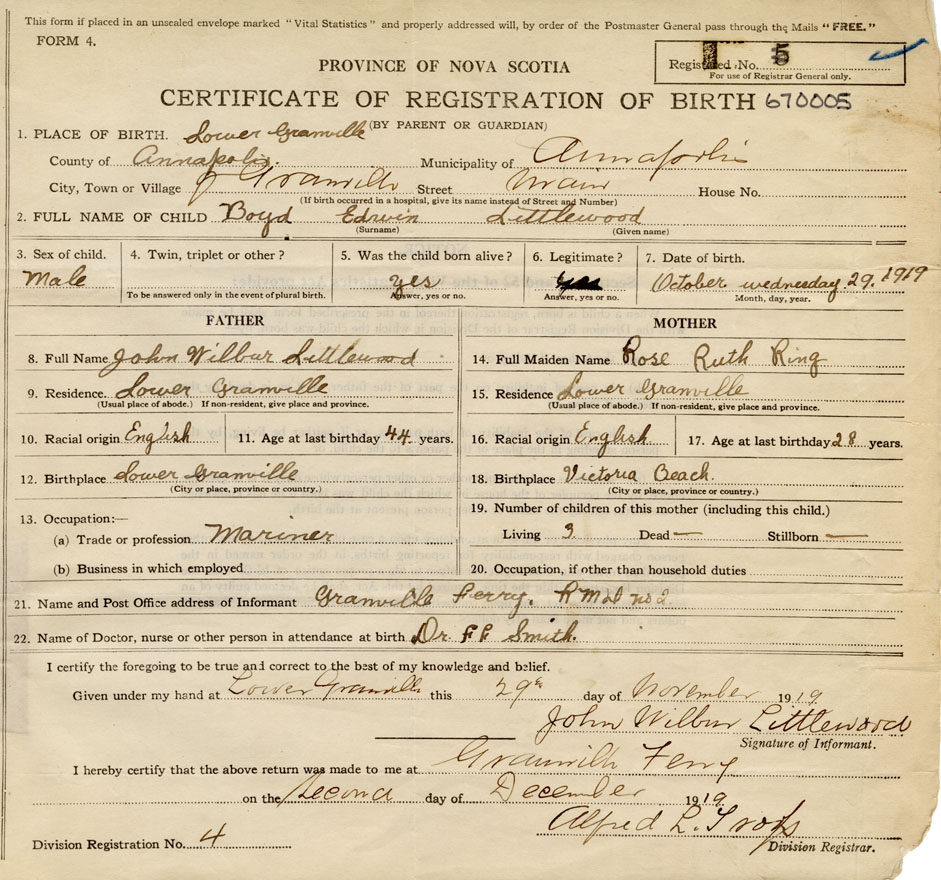 This form if placed in an unsealed envelope marked "Vital Statistics" and properly addressed will, by order of the Postmaster General pass through the Mails "FREE."
FORM 4.
Registered No. 5
For use of Registrar General only.
PROVINCE OF NOVA SCOTIA
CERTIFICATE OF REGISTRATION OF BIRTH 670005
(BY PARENT OR GUARDIAN)
1. PLACE OF BIRTH. Lower Granville
County of Annapolis. Municipality of Annapolis
City, Town or Village Granville Street Main House No.
(If birth occurred in a hospital, give its name instead of Street and Number)
2. FULL NAME OF CHILD Boyd Edwin Littlewood
(Surname) (Given name)
3. Sex of child. 4. Twin, triplet or other? 5. Was the child born alive? 6. Legitimate? 7. Date of birth.
Male yes yes October wednesday 29. 1919
To be answered only in the event of plural birth. Answer, yes or no. Answer, yes or no. Month, day, year.
FATHER MOTHER
8. Full Name John Wilbur Littlewood 14. Full Maiden Name Rose Ruth Ring
9. Residence. Lower Granville 15. Residence Lower Granville
(Usual place of abode.) If non-resident, give place and province. (Usual place of abode.) If non-resident, give place and province.
10. Racial origin English 11. Age at last birthday 44 years. 16. Racial origin English 17. Age at last birthday 28 years.
12. Birthplace Lower Granville 18. Birthplace Victoria Beach.
(City or place, province or country.) (City or place, province or country.)
13. Occupation:— 19. Number of children of this mother (including this child.)
(a) Trade or profession Mariner Living 3 Dead — Stillborn —
(b) Business in which employed 20. Occupation, if other than household duties
21. Name and Post Office address of Informant Granville Ferry. R M D no 2
22. Name of Doctor, nurse or other person in attendance at birth Dr F F Smith.
I certify the foregoing to be true and correct to the best of my knowledge and belief.
Given under my hand at Lower Granville this 29th day of November 1919
John Wilbur Littlewood
Signature of Informant.
I hereby certify that the above return was made to me at Granville Ferry
on the Second day of December 1919
Alfred L.
Division Registrar.
Division Registration No. 4